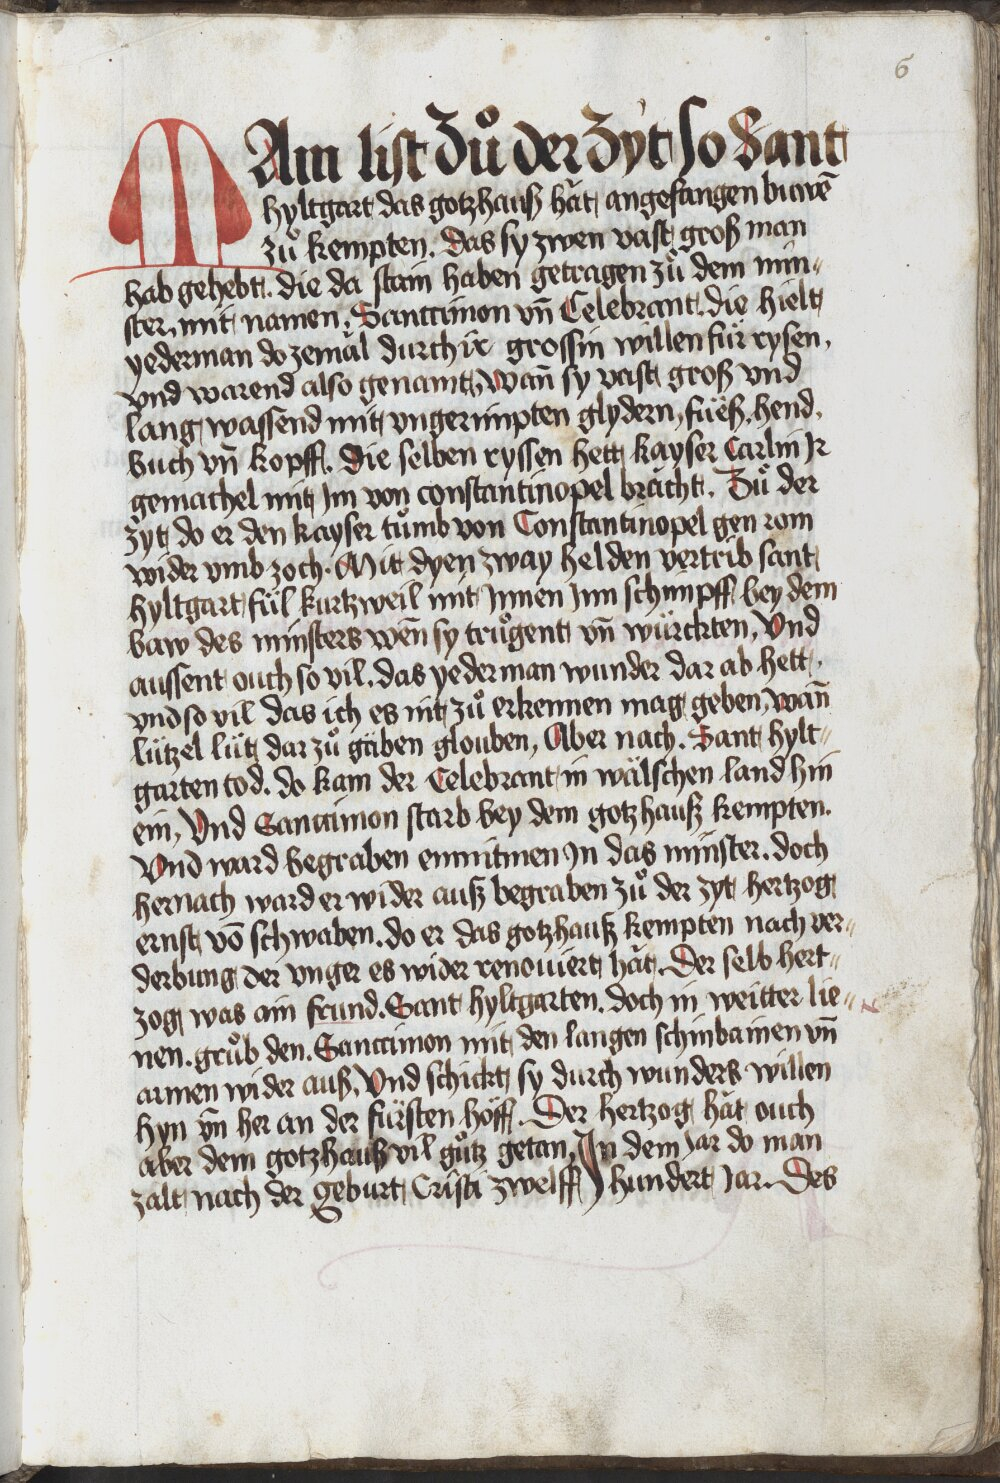 6
MAin list Zuͦ der Zyt so Sant
hyltgart das gotzhauß hăt angefangen buwē
zuͦ kempten. Das sy zwen vast groß man
hab gehebt. die da stain haben getragen zuͦ dem min⸗
ster. mit namen. Sanctimon vn̄ Celebrant. die hielt
yederman do zemăl durch ir grossin willen für rysen,
vnd warend also genamt, Wan̄ sy vast groß vnd
lang wassend mit vngerimpten glydern, füeß, hend,
buch vn̄ kopff. Die selben ryssen hett kayser Carlin Jr
gemachel mit Jm von constantinopel brăcht. Zuͦ der
zyt do er den kayser tuͦmb von Constantinopel gen rom
wider vmb zoch. Mit dyen zway helden vertrib sant
hyltgart fül kurtzweil mit Jnnen Jnn schimpff bey dem
baw des minsters wen̄ sy truͦgent vn̄ würckten, Vnd
aussent ouch so vil. das yederman wunder dar ab hett,
vnd so vil das ich es nit zuͦ erkennen mag geben, wan̄
lützel lüt dar zuͦ gäben glouben, Aber nach. Sant hylt⸗
garten tod. do kam der Celebrant in wälschen land hin
ein, Vnd Sanctimon starb bey dem gotzhauß kempten.
Vnd ward begraben enmitmen Jn das minster. doch
hernach ward er wider auß begraben zuͦ der zyt hertzog
ernst vō schwaben. do er das gotzhauß kempten nach ver⸗
derbung der vnger es wider renoviert hăt. Der selb hert⸗
zog was ain frund. Sant hyltgarten. doch in weitter lie⸗
nen. gruͦb den. Sanctimon mit den langen schinbainen vn̄
armen wider auß, Vnd schickt sy durch wunders willen
hyn vn̄ her an der fürsten höff. Der hertzog hăt ouch
aber dem gotzhauß vil guͦtz getan, Jn dem Jar do man
zalt nach der geburt Cristi zwelff hundert Jar. Des